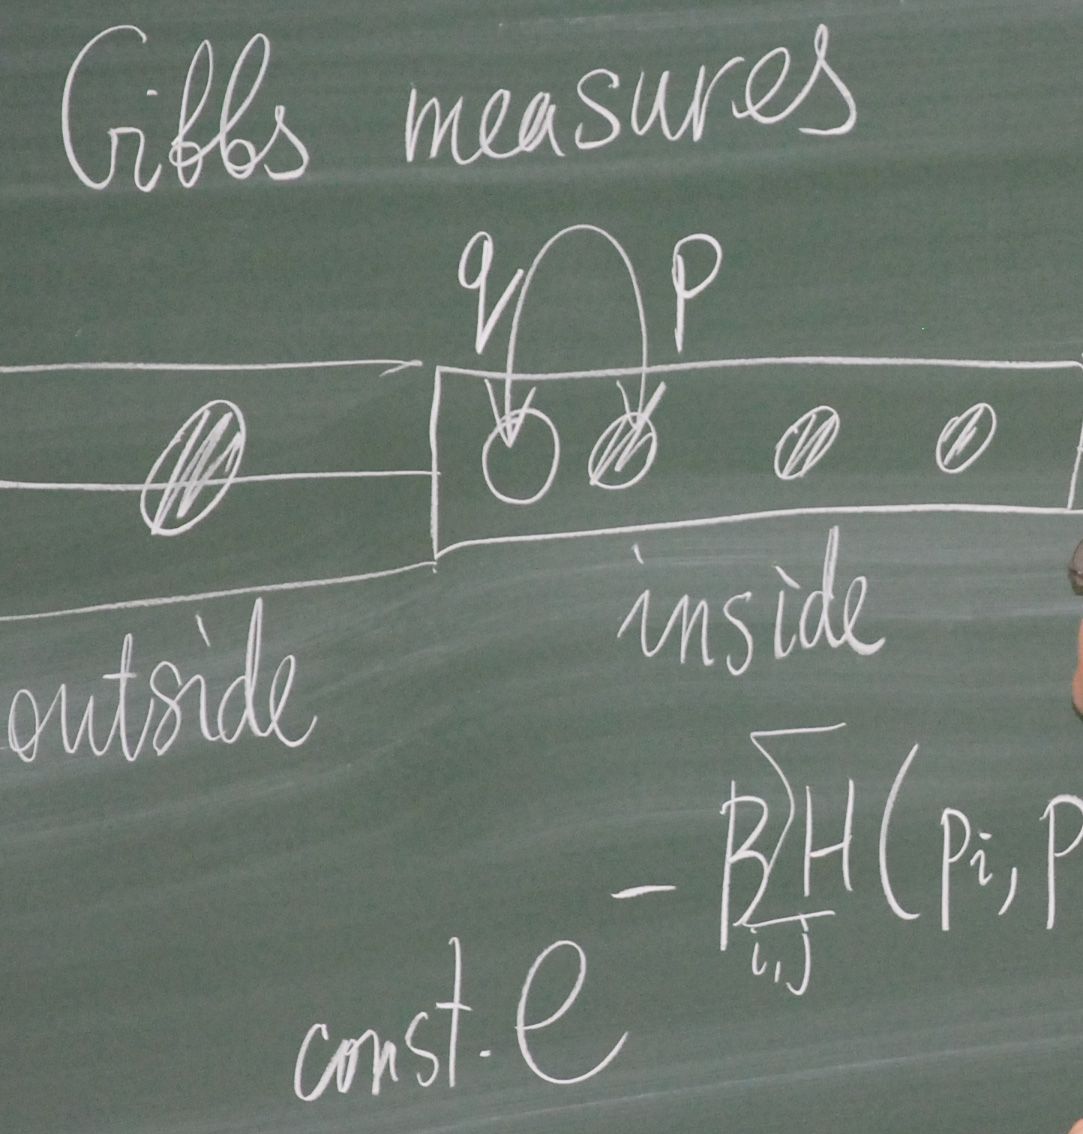 Gibbs measures
q p
inside
outside
const. e^{-β∑_{i,j} H(p_i, p